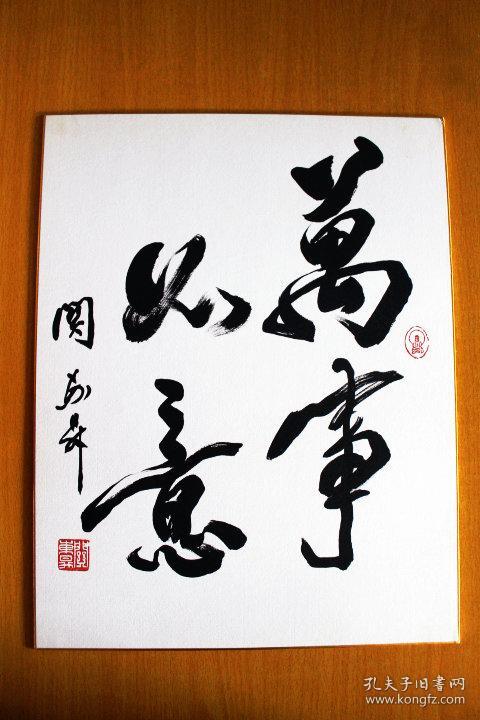 萬事
如意
関东升
関東昇
孔夫子旧书网
www.kongfz.com